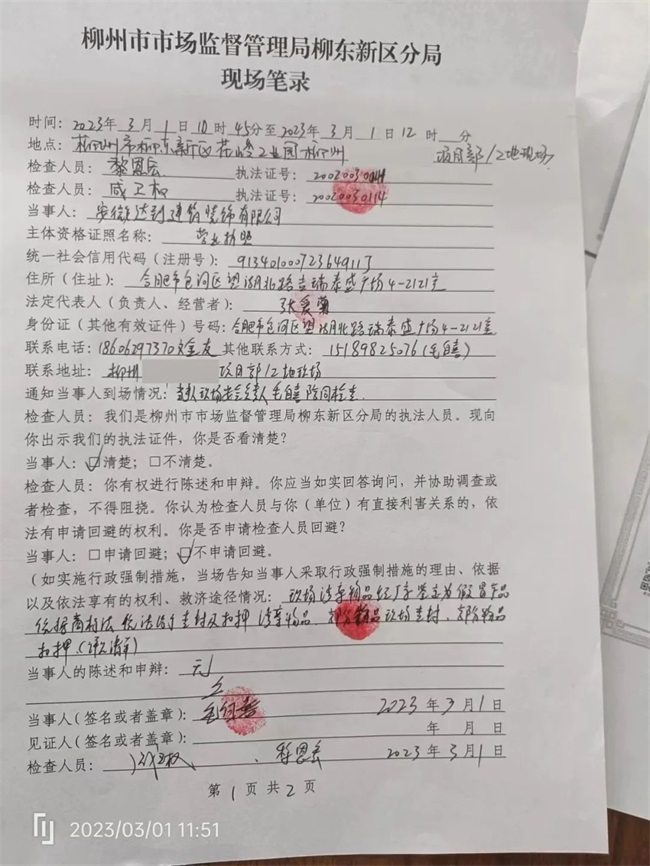 柳州市市场监督管理局柳东新区分局
现场笔录
时间：2023年 3 月 1 日 10 时 45分至 2023年 3 月 1 日 12 时 分
地点：柳州市柳东新区花岭工业园柳州 项目部/工地现场
检查人员：黎恩 执法证号：2002003
检查人员： 卫 执法证号：20020030114
当事人：安徽达利建筑装饰有限公司
主体资格证照名称：营业执照
统一社会信用代码（注册号）：
住所（住址）：合肥市包河区望湖北路 瑞泰盛广场4-2121室
法定代表人（负责人、经营者）：张爱菊
身份证（其他有效证件）号码：合肥市包河区望湖北路瑞泰盛广场4-2121室
联系电话：18606297370 友 其他联系方式：15189825076（毛 ）
联系地址：柳州 项目部/工地现场
通知当事人到场情况： 现场 毛 陪同检查.
检查人员：我们是柳州市市场监督管理局柳东新区分局的执法人员。现向
你出示我们的执法证件，你是否看清楚？
当事人：☑清楚；□不清楚。
检查人员：你有权进行陈述和申辩。你应当如实回答询问，并协助调查或
者检查，不得阻挠。你认为检查人员与你（单位）有直接利害关系的，依
法有申请回避的权利。你是否申请检查人员回避？
当事人：□申请回避；☑不申请回避。
（如实施行政强制措施，当场告知当事人采取行政强制措施的理由、依据
以及依法享有的权利、救济途径情况：现场涉案物品经厂家鉴定为假冒产品
依据商标法 依法给予查封及扣押 涉案物品，部分物品现场查封，部分物品
扣押.
当事人的陈述和申辩：无
当事人（签名或者盖章）： 2023 年 3 月 1 日
见证人（签名或者盖章）： 年 月 日
检查人员： 、黎恩 2023 年 3 月 1 日
第 1 页 共 2 页
2023/03/01 11:51